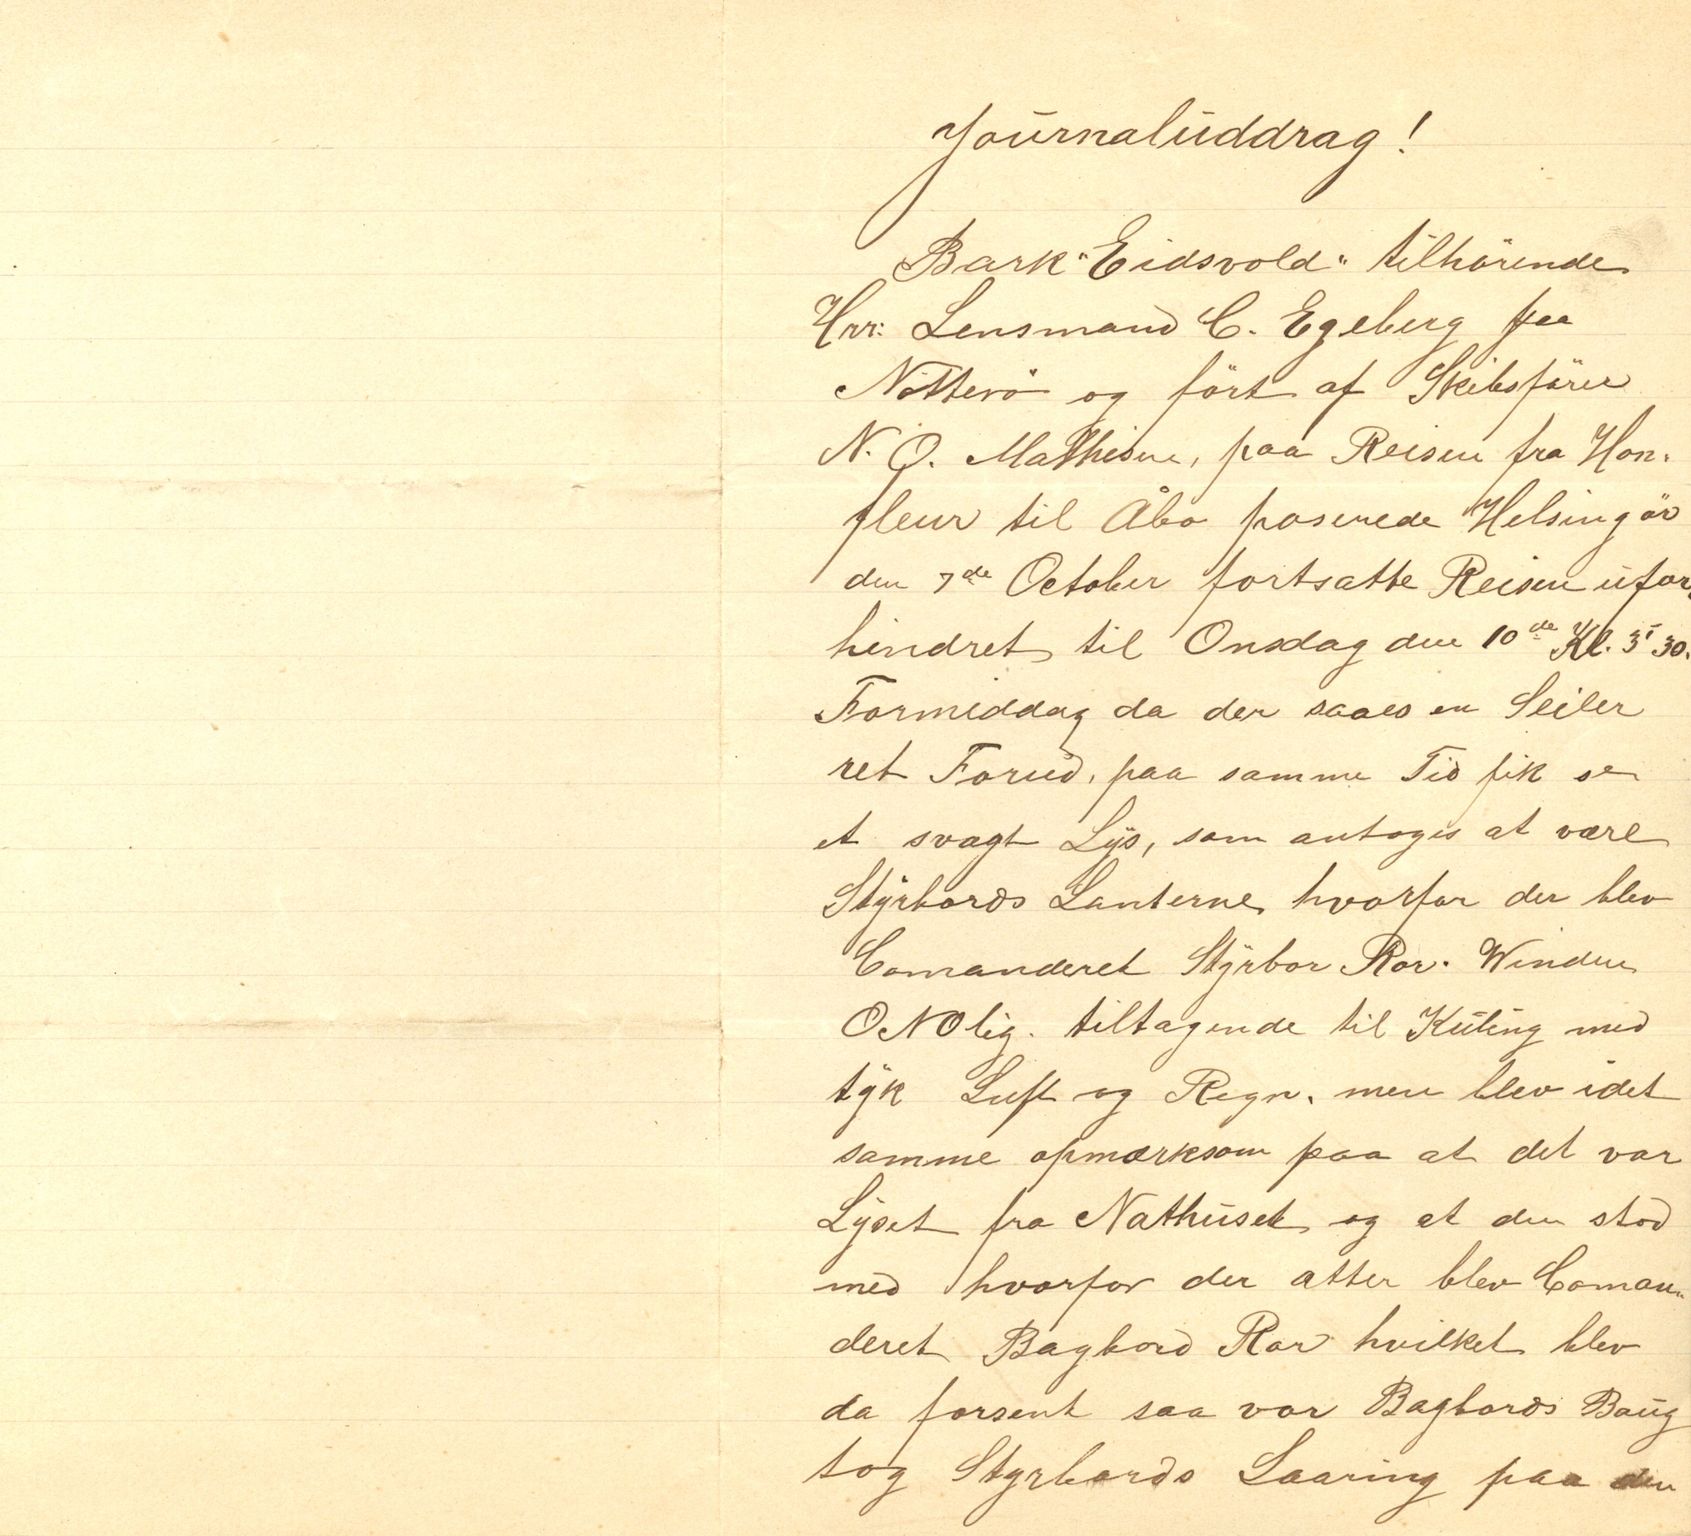 Journaluddrag!
Bark "Eidsvold" tilhörende
Hrr: Lensmand C. Egeberg paa
Nötterö og fört af Skibsförer
N. O. Mathisen, paa Reisen fra Hon-
fleur til Åbo passerede Helsingör
den 7de October fortsatte Reisen ufor-
hindret til Onsdag den 10de Kl. 3 30.
Formiddag da der saaes en Seiler
ret Forud, paa samme Tid fik se
et svagt Lys, som antoges at være
Styrbords Lanterne, hvorfor der blev
Comanderet Styrbor Ror. Winden
ONOlig. tiltagende til Kuling med
tyk Luft og Regn. men blev idet
samme opmærksom paa at det var
Lyset fra Nathuset og at den stod
med hvorfor der atter blev Coman-
deret Bagbord Ror hvilket blev
da forsent saa vor Bagbords Baug
tog Styrbords Laaring paa den